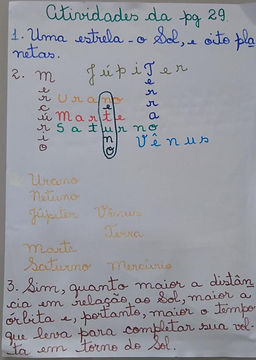 Atividades da pg 29.
1. Uma estrela - o Sol, e oito pla
netas.
2. Mercúrio
Júpiter
Terra
Urano
Marte
Saturno
Neturno
Vênus
Urano
Netuno
Júpiter Vênus
Terra
Marte
Saturno Mercúrio
3. Sim, quanto maior a distân
cia em relação ao Sol, maior a
órbita e, portanto, maior o tempo
que leva para completar sua vol-
ta em torno do Sol.